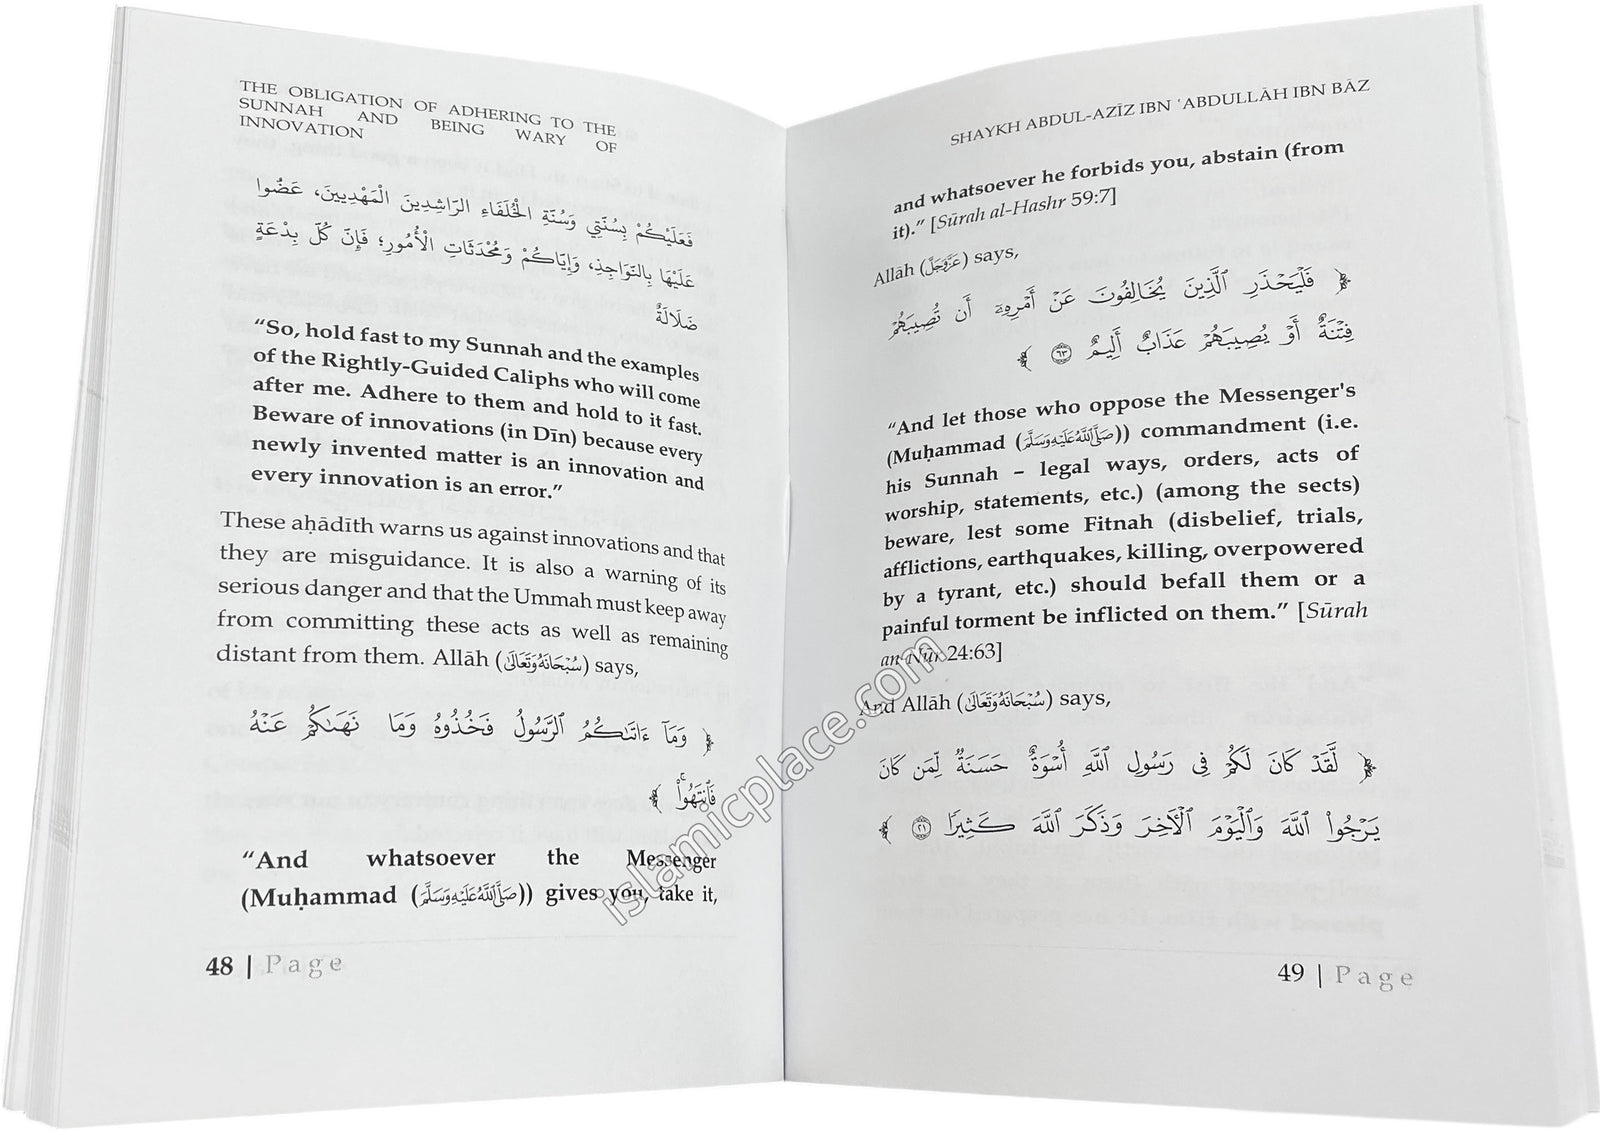 THE OBLIGATION OF ADHERING TO THE
SUNNAH AND BEING WARY OF
INNOVATION
فَعَلَيْكُمْ بِسُنَّتِي وَسُنَّةِ الْخُلَفَاءِ الرَّاشِدِينَ الْمَهْدِيينَ، عَضُّوا
عَلَيْهَا بِالنَّوَاجِذِ، وَإِيَّاكُمْ وَمُحْدَثَاتِ الْأُمُورِ؛ فَإِنَّ كُلَّ بِدْعَةٍ
ضَلَالَةٌ
“So, hold fast to my Sunnah and the examples
of the Rightly-Guided Caliphs who will come
after me. Adhere to them and hold to it fast.
Beware of innovations (in Dīn) because every
newly invented matter is an innovation and
every innovation is an error.”
These aḥādīth warns us against innovations and that
they are misguidance. It is also a warning of its
serious danger and that the Ummah must keep away
from committing these acts as well as remaining
distant from them. Allāh (سُبْحَانَهُ وَتَعَالَىٰ) says,
﴿ وَمَآ ءَاتَىٰكُمُ ٱلرَّسُولُ فَخُذُوهُ وَمَا نَهَىٰكُمْ عَنْهُ
فَٱنتَهُوا۟ۚ ﴾
“And whatsoever the Messenger
(Muḥammad (صَلَّى اللَّهُ عَلَيْهِ وَسَلَّمَ)) gives you, take it,
48 | Page
SHAYKH ABDUL-AZĪZ IBN ʿABDULLĀH IBN BĀZ
and whatsoever he forbids you, abstain (from
it).” [Sūrah al-Hashr 59:7]
Allāh (عَزَّوَجَلَّ) says,
﴿ فَلْيَحْذَرِ ٱلَّذِينَ يُخَالِفُونَ عَنْ أَمْرِهِۦٓ أَن تُصِيبَهُمْ
فِتْنَةٌ أَوْ يُصِيبَهُمْ عَذَابٌ أَلِيمٌ ٦٣ ﴾
“And let those who oppose the Messenger's
(Muḥammad (صَلَّى اللَّهُ عَلَيْهِ وَسَلَّمَ)) commandment (i.e.
his Sunnah – legal ways, orders, acts of
worship, statements, etc.) (among the sects)
beware, lest some Fitnah (disbelief, trials,
afflictions, earthquakes, killing, overpowered
by a tyrant, etc.) should befall them or a
painful torment be inflicted on them.” [Sūrah
an-Nūr 24:63]
And Allāh (سُبْحَانَهُ وَتَعَالَىٰ) says,
﴿ لَّقَدْ كَانَ لَكُمْ فِى رَسُولِ ٱللَّهِ أُسْوَةٌ حَسَنَةٌ لِّمَن كَانَ
يَرْجُوا۟ ٱللَّهَ وَٱلْيَوْمَ ٱلْـَٔاخِرَ وَذَكَرَ ٱللَّهَ كَثِيرًا ٢١ ﴾
49 | Page
islamicplace.com